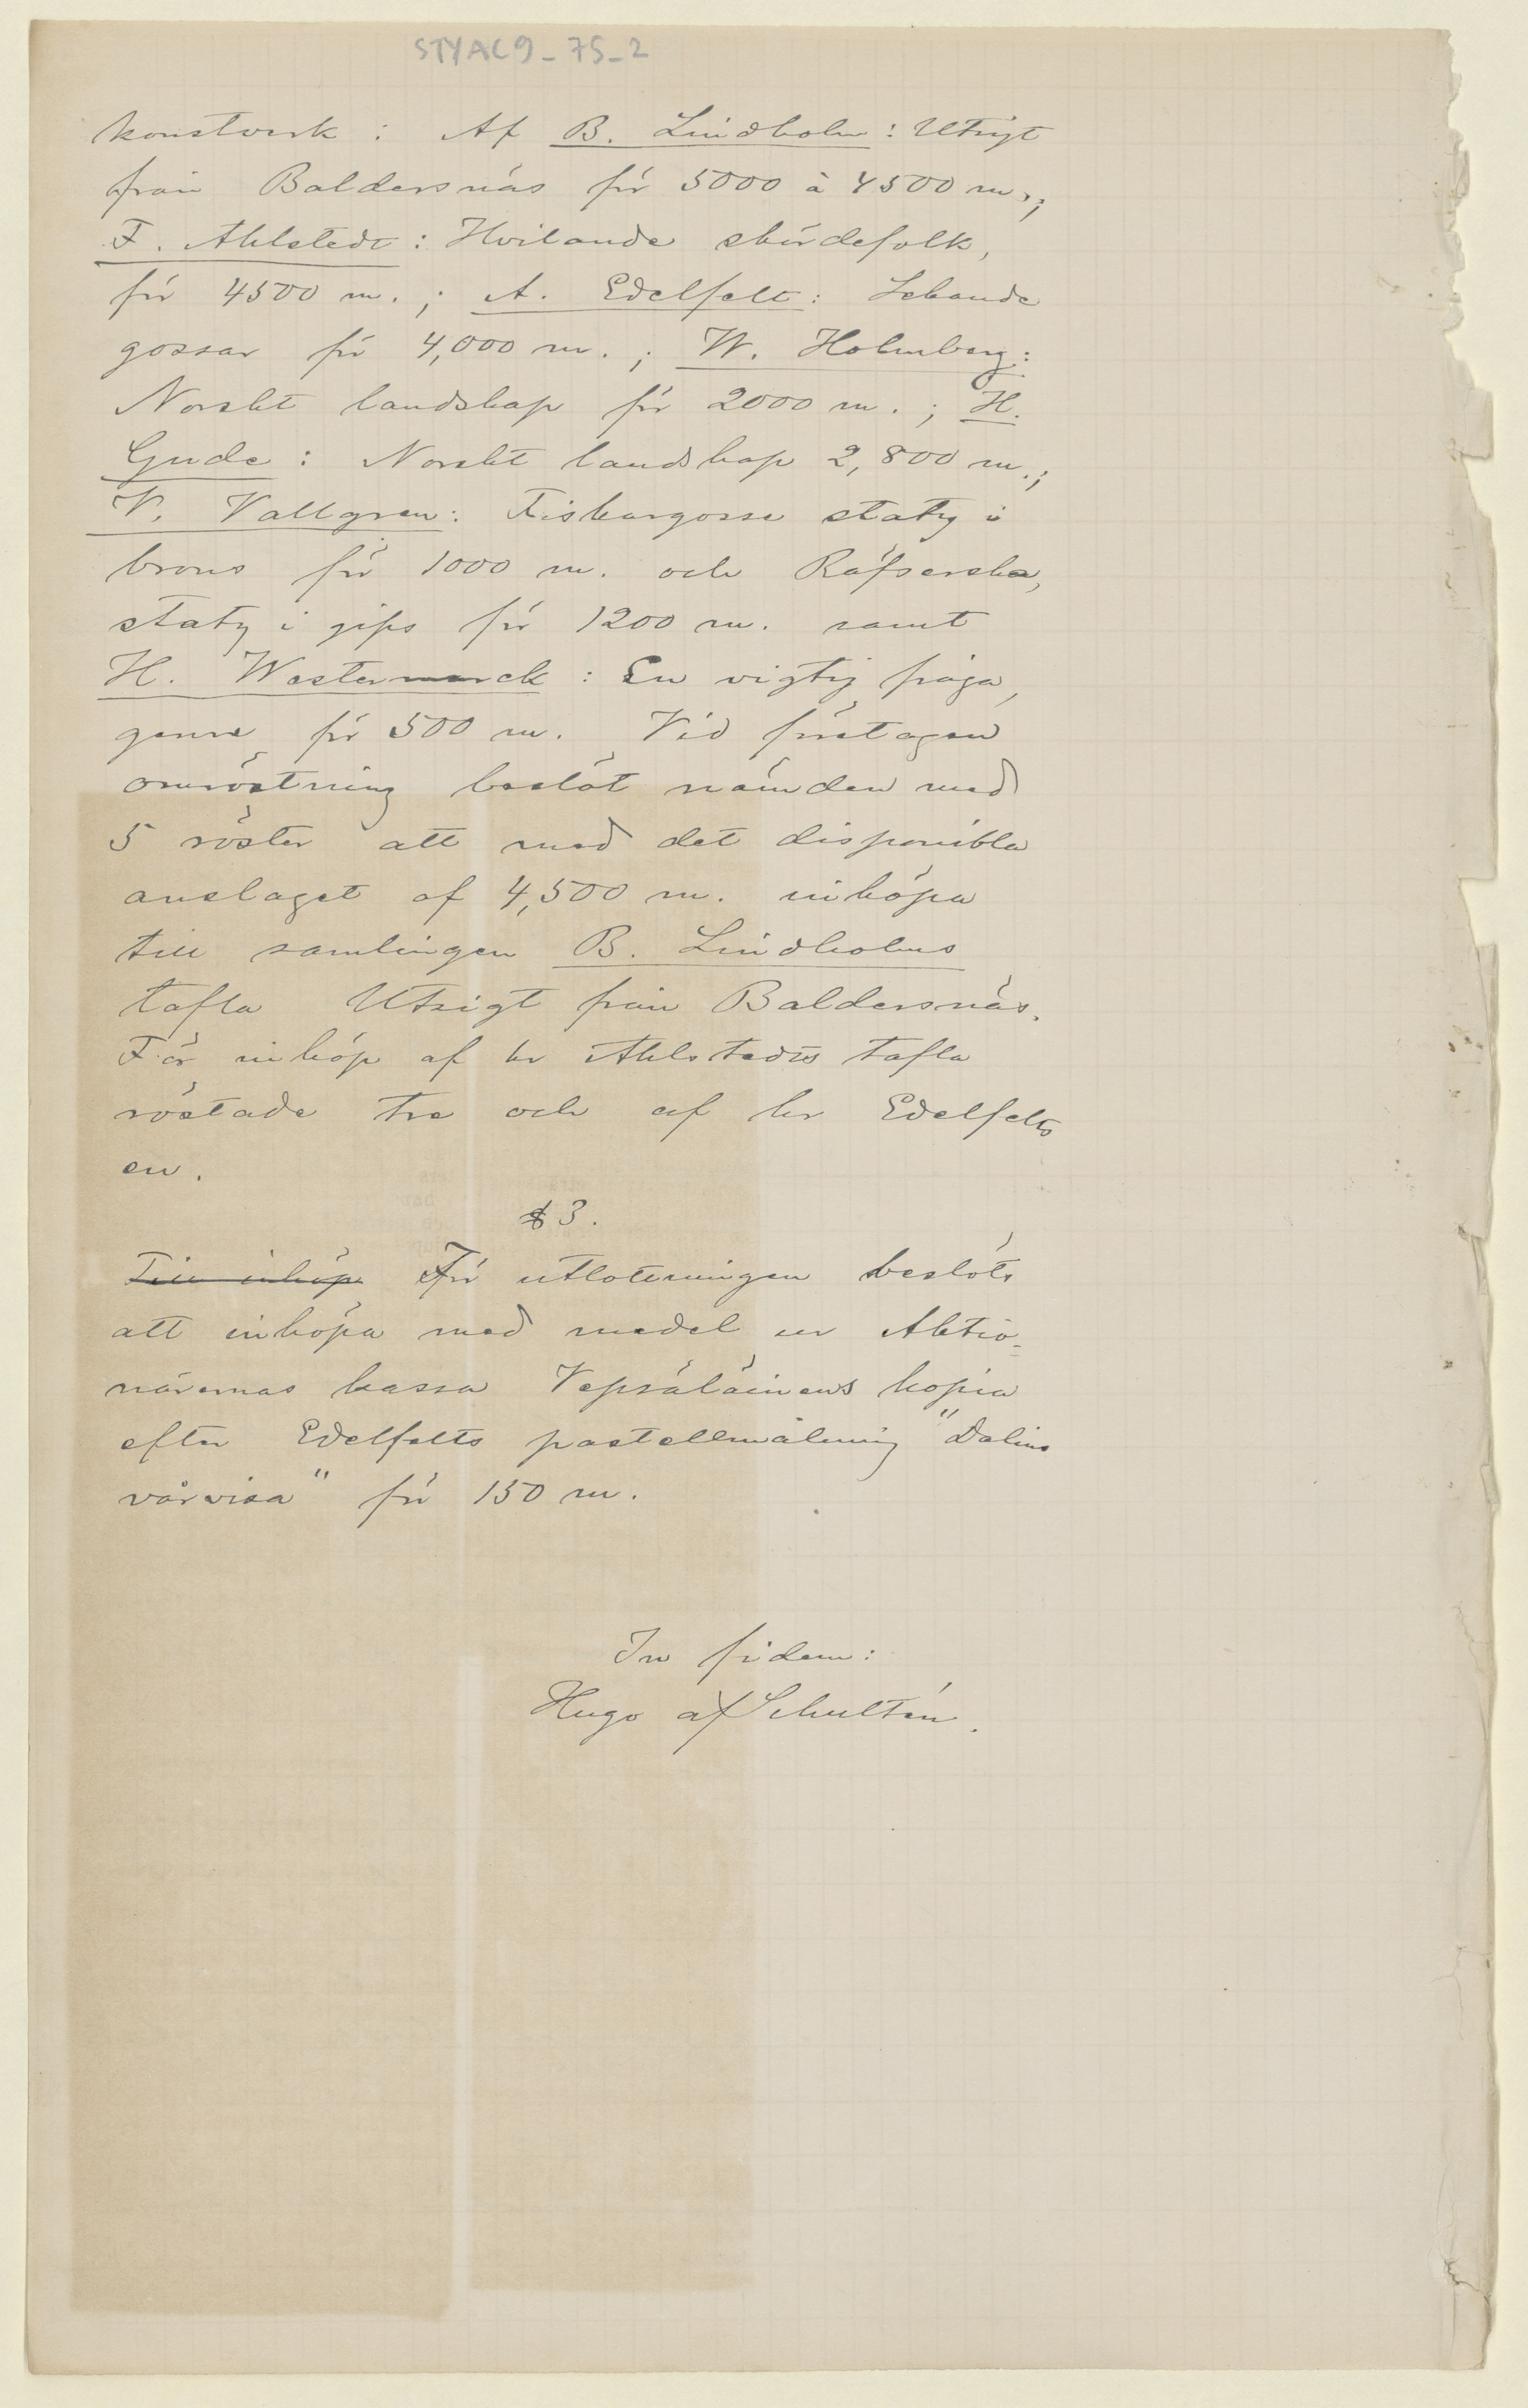 STYAC9_75_2
konstverk : Af B. Lindholm : Utsigt
från Baldersnäs för 5000 à 4500 m.;
F. Ahlstedt : Hvilande skördefolk,
för 4500 m. ; A. Edelfelt : Lekande
gossar för 4,000 m. ; W. Holmberg :
Norskt landskap för 2000 m. ; H.
Gude : Norskt landskap 2,800 m.;
V. Vallgren : Fiskargosse staty i
brons för 1000 m. och Räfserska,
staty i gips för 1200 m. samt
H. Westermarck : En vigtig fråga,
genre för 500 m. Vid företagen
omröstning beslöt nämnden med
5 röster att med det disponibla
anslaget af 4,500 m. inköpa
till samlingen B. Lindholms
tafla Utsigt från Baldersnäs.
För inköp af hr Ahlstedts tafla
röstade tre och af hr Edelfelts
en.
§ 3.
Till inköp För utlottningen beslöts
att inköpa med medel ur Aktio-
närernas kassa Vepsäläinens kopia
efter Edelfelts pastellmålning "Dalins
vårvisa" för 150 m.
In fidem :
Hugo af Schultén.